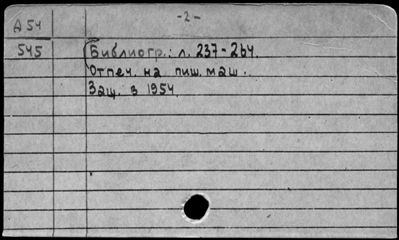 -2-
А 54
545 Библиогр.: л. 237-264.
Отпеч. на пиш. маш.
Защ. в 1954.